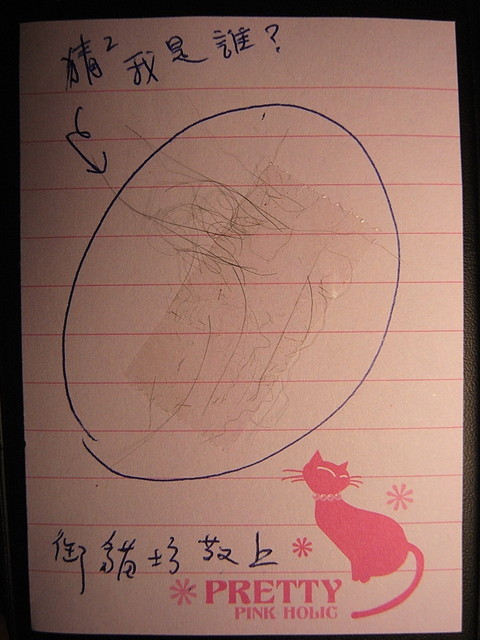 猜² 我是誰？
街貓坊 敬上
PRETTY
PINK HOLIC